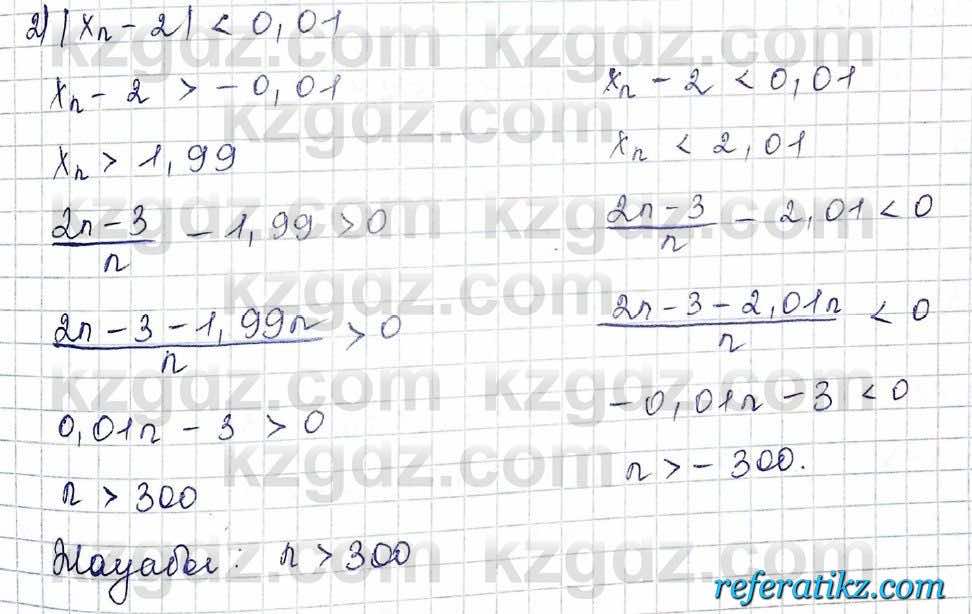 2) |xₙ - 2| < 0,01
xₙ - 2 > - 0,01
xₙ > 1,99
(2n - 3)/n - 1,99 > 0
(2n - 3 - 1,99n)/n > 0
0,01n - 3 > 0
n > 300
xₙ - 2 < 0,01
xₙ < 2,01
(2n - 3)/n - 2,01 < 0
(2n - 3 - 2,01n)/n < 0
-0,01n - 3 < 0
n > - 300.
Жауабы: n > 300
kzgdz.com
referatikz.com